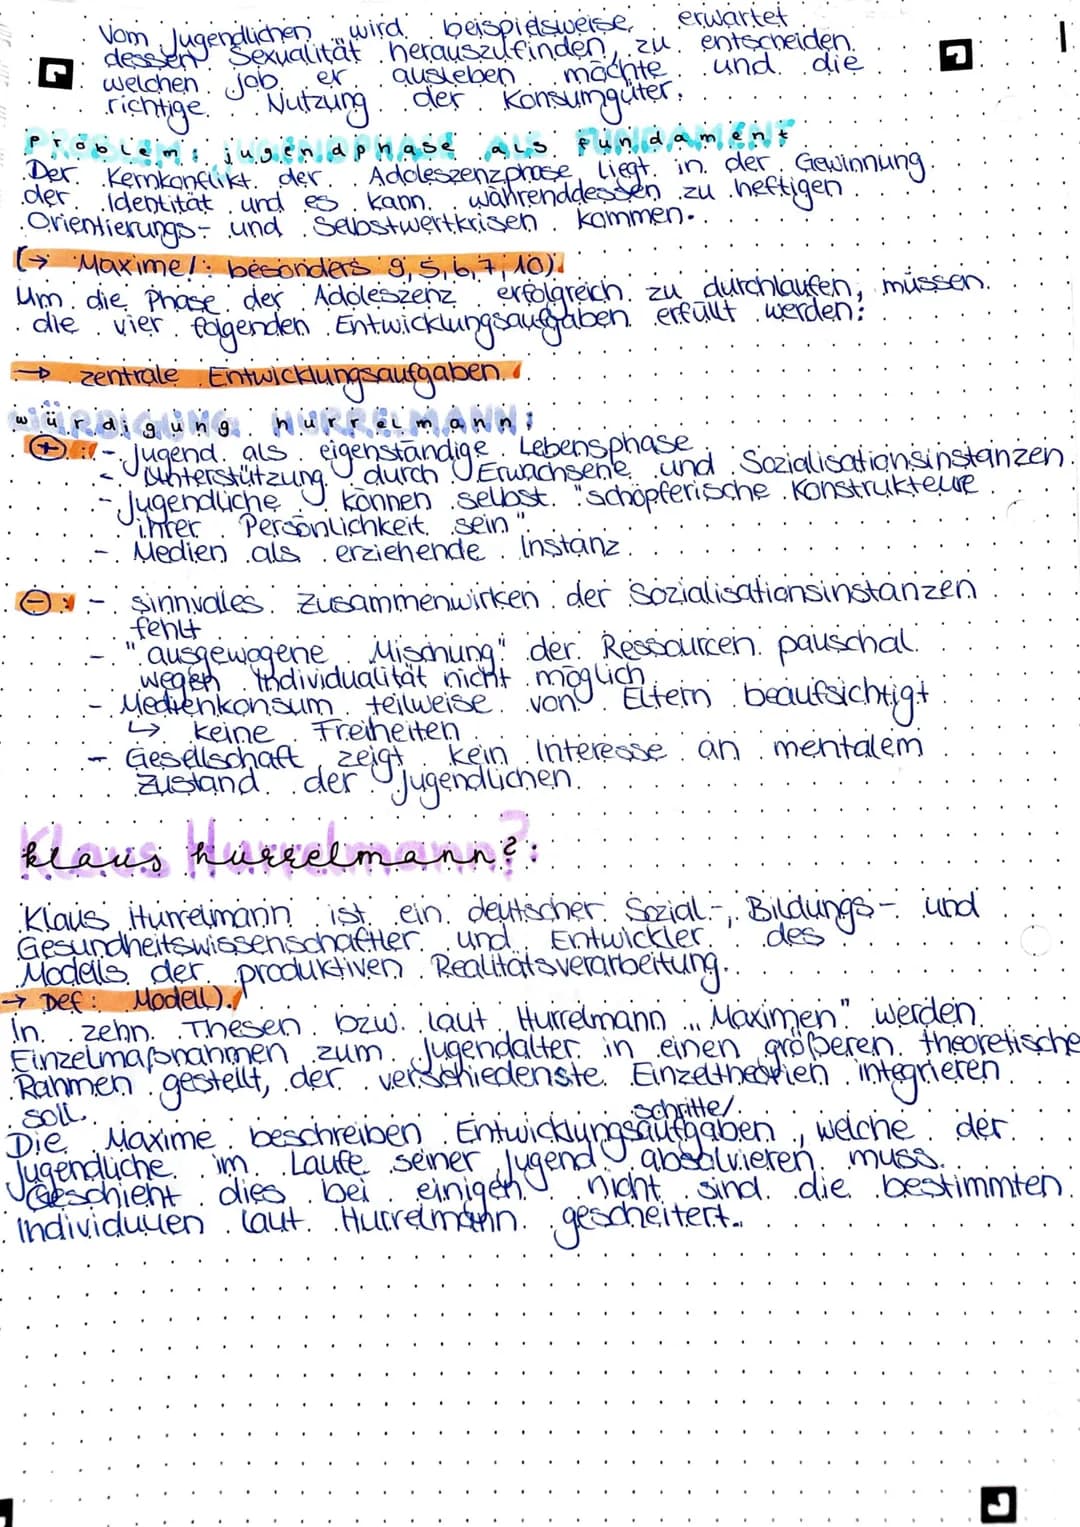 Vom Jugendlichen wird beispielsweise erwartet
dessen Sexualität herauszufinden, zu entscheiden
welchen Job er ausleben möchte und die
richtige Nutzung der Konsumgüter.
Problem: Jugendphase als Fundament
Der Kernkonflikt der Adoleszenzphase liegt in der Gewinnung
der Identität und es kann währenddessen zu heftigen
Orientierungs- und Selbstwertkrisen kommen.
(→ Maxime/: besonders 9,5,6,7,10).
Um die Phase der Adoleszenz erfolgreich zu durchlaufen, müssen
die vier folgenden Entwicklungsaufgaben erfüllt werden:
→ zentrale Entwicklungsaufgaben.
würdigung hurrelmann:
⊕: - Jugend als eigenständige Lebensphase
- Unterstützung durch Erwachsene und Sozialisationsinstanzen
- Jugendliche können selbst "schöpferische Konstrukteure
ihrer Persönlichkeit sein"
- Medien als erziehende Instanz
⊖: - sinnvolles Zusammenwirken der Sozialisationsinstanzen
fehlt
- "ausgewogene Mischung" der Ressourcen pauschal
wegen Individualität nicht möglich
- Medienkonsum teilweise von Eltern beaufsichtigt
↳ keine Freiheiten
- Gesellschaft zeigt kein Interesse an mentalem
Zustand der Jugendlichen
klaus hurrelmann?:
Klaus Hurrelmann ist ein deutscher Sozial-, Bildungs- und
Gesundheitswissenschaftler und Entwickler des
Modells der produktiven Realitätsverarbeitung.
→ Def: Modell).
In zehn Thesen bzw. laut Hurrelmann „Maximen" werden
Einzelmaßnahmen zum Jugendalter in einen größeren theoretische
Rahmen gestellt, der verschiedenste Einzeltheorien integrieren
soll.
schritte/
Die Maxime beschreiben Entwicklungsaufgaben, welche der
Jugendliche im Laufe seiner Jugend absolvieren muss.
Geschieht dies bei einigen nicht sind die bestimmten
Individuuen laut Hurrelmann gescheitert.